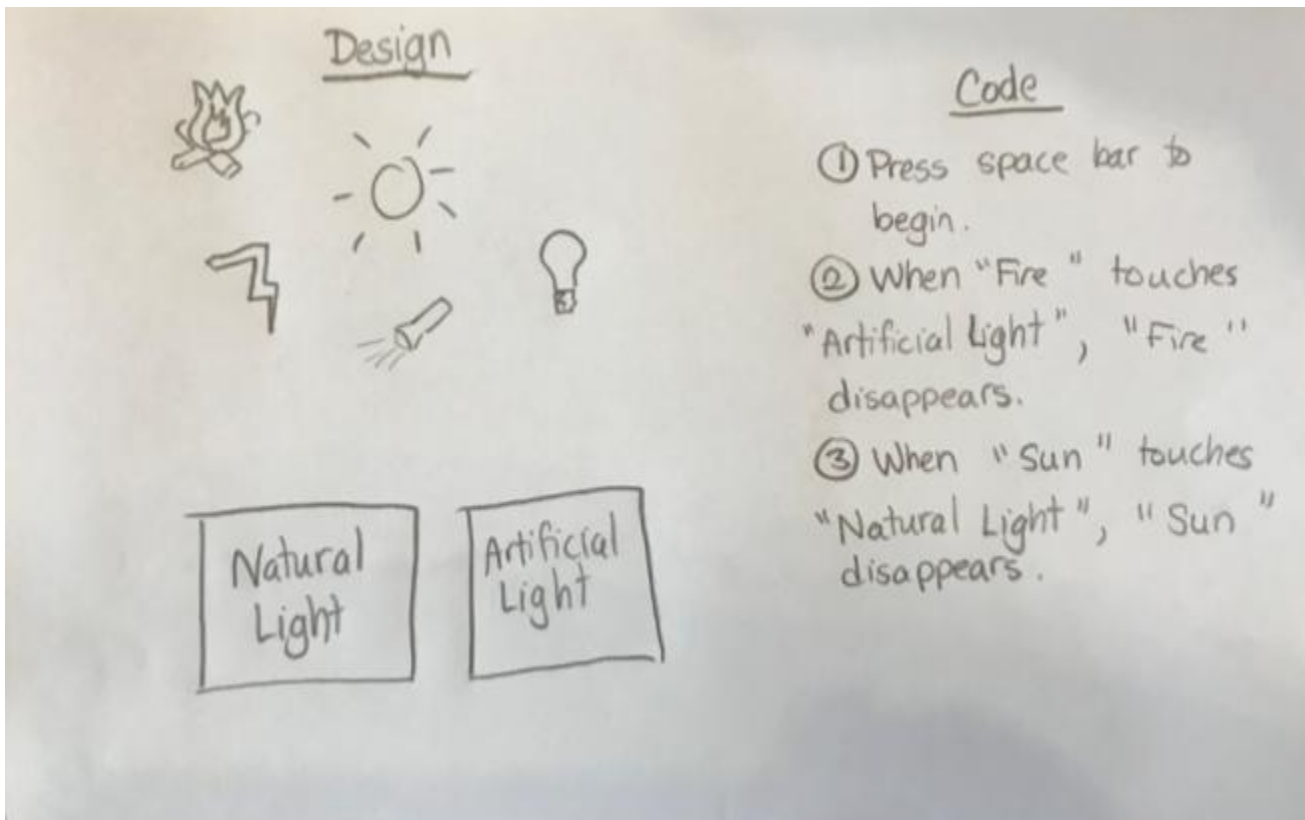 Design
Natural
Light
Artificial
Light
Code
① Press space bar to
begin.
② When "Fire" touches
"Artificial Light", "Fire"
disappears.
③ When "Sun" touches
"Natural Light", "Sun"
disappears.